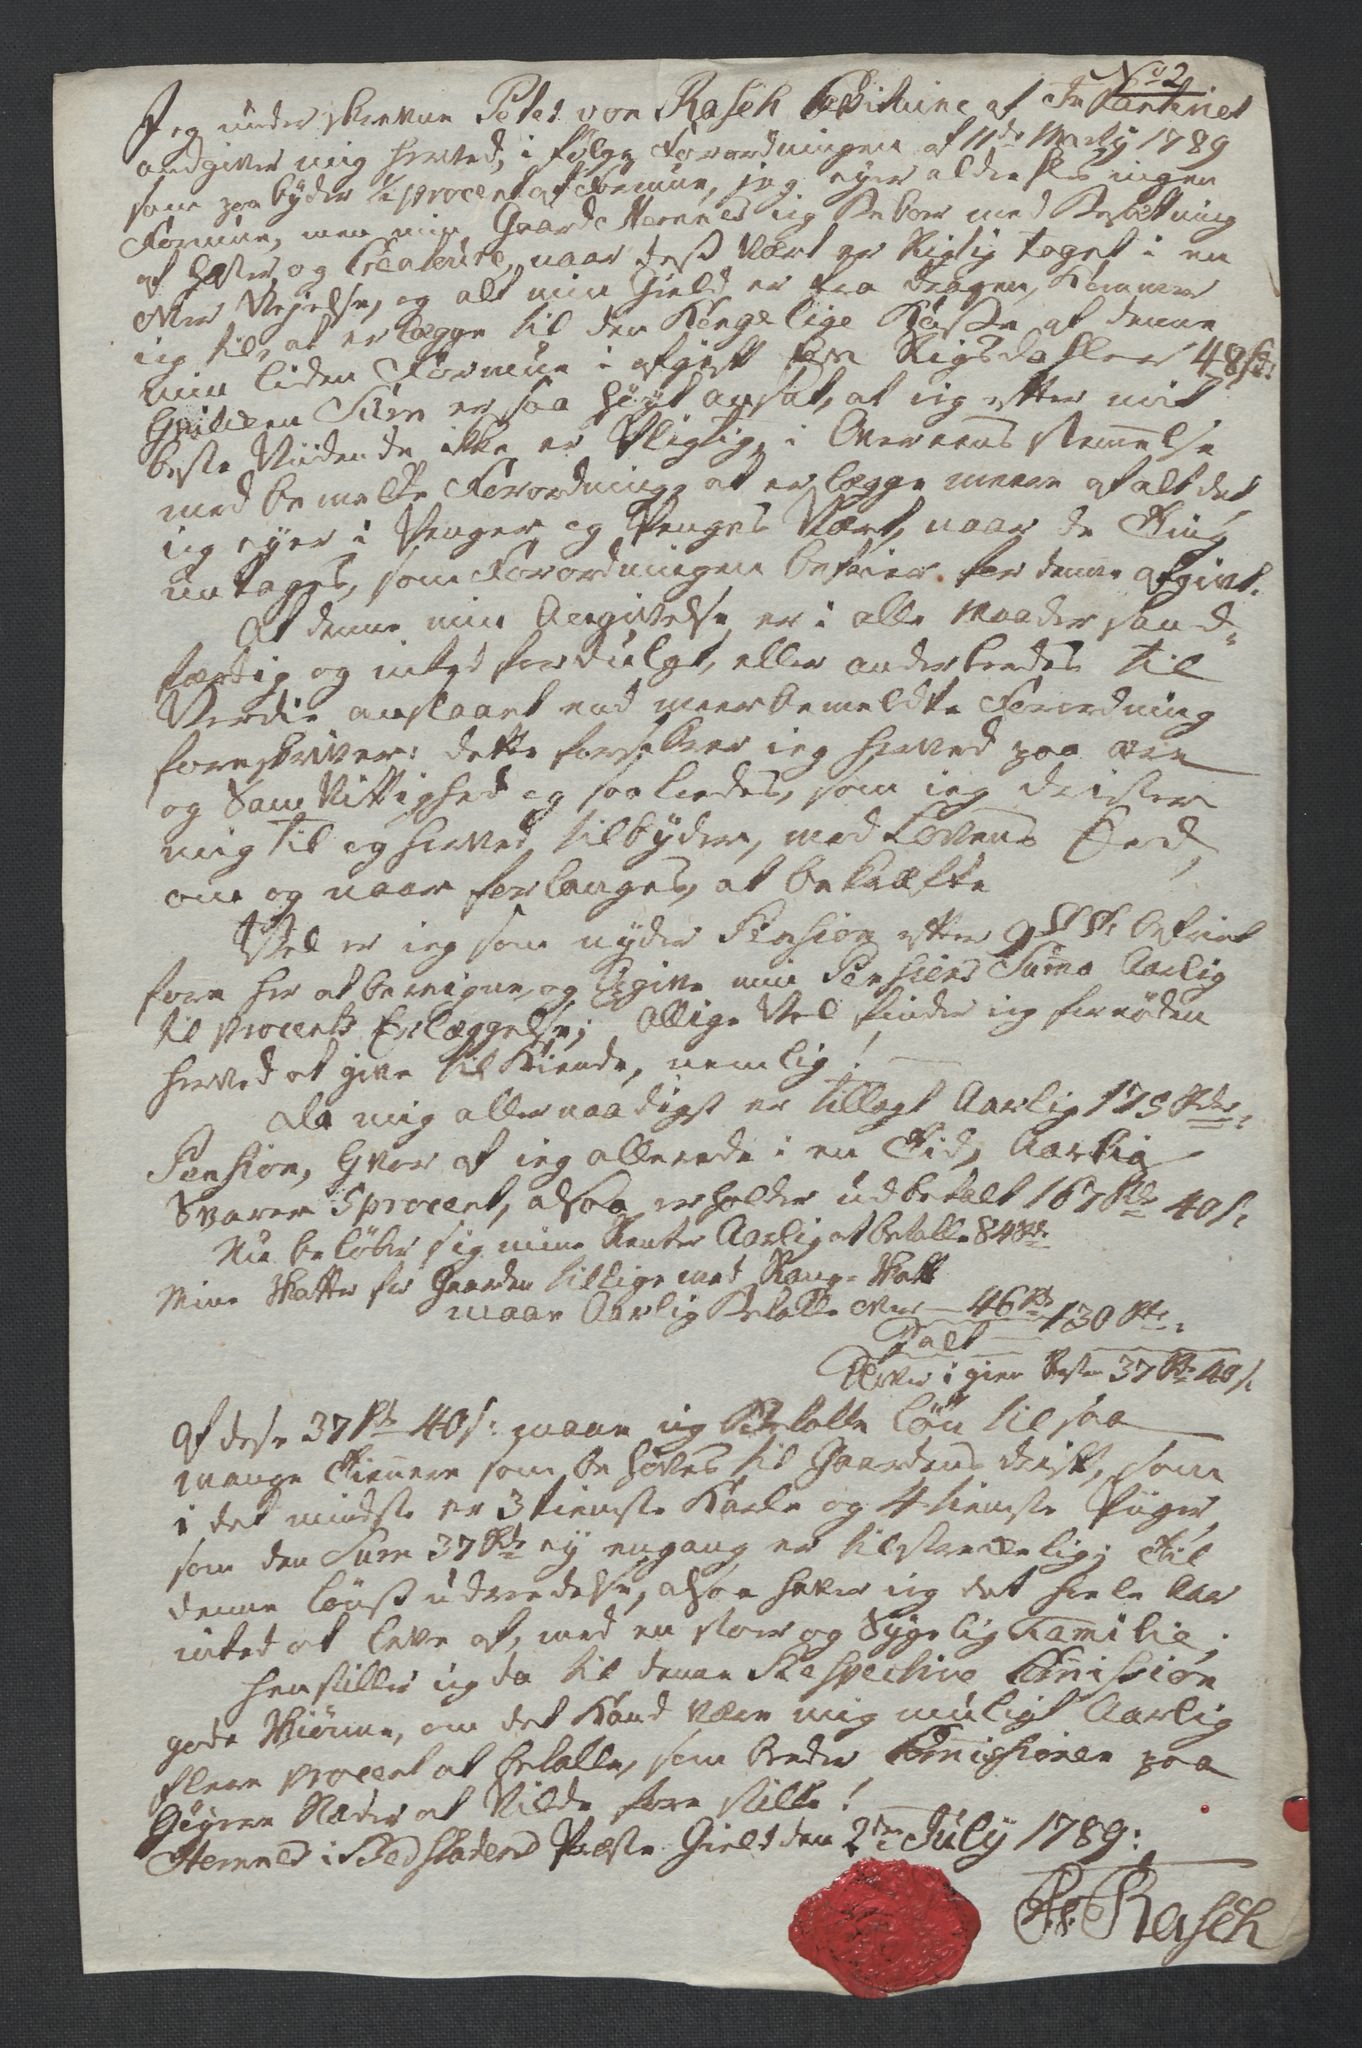 No 2
Jeg under skrevne Peter von Rasch Capitaine af Infanteriet
andgiver mig herved, i følge Forordningen af 11de Marty 1789
som paabyder ½ procent af Formue, jeg eyer aldeeles ingen
Formue, men min Gaard Hemnes ieg beboer med Besætning
af Hæster og Creature, naar dess værd er Rigtig taget i en
over Vejelse, og alt min Gield er fra dragen, kommer
ieg til, at erlægge til den Kongelige Kasse af denne
min liden Formue i afgift een Rigsdahler 48 s:
hvilcken Sum er saa høyt ansat, at ieg etter mit
beste Vidende ikke er Pligtig, i Overeens stemmelse
med bemelte Forordning, at erlægge meere af alt det
ieg eyer i Penger og Penges Værd, naar de Ting
untages, som Forordningen befrier for denne afgivt.
At denne min Angivelse er i alle Maader sand-
færdig og intet fordulgt, eller anderleedes til
Verdie anslaaet end meerbemeldte Forordning
foreskriver: dette forsikrer ieg herved paa ære
og Samvittighed og saaleedes, som ieg drister
mig til og herved tilbyder, med Lovens Eed,
om og naar forlanges, at bekræfte
Vel er ieg som nyder Pension etter 9 § befriet
fore her at beregne og Opgive min Pensions Suma Aarlig
til procents Erlæggelse; allige Vel finder ieg fornøden
herved at give til Kiende, nemlig!
Da mig allernaadigst er tillagt Aarlig 175 Rdr:
Pension, hvor af ieg allerede i en Tid, Aarlig
Svarer 5 procent, altsaa erholder udbetalt 167 Rd 40 s:
Nu beløber sig mine Renter Aarlig at betalle 84 Rd
Mine Skatter for Gaarden tillige med Rang-Skatt
maae Aarlig Betalle over — 46 Rd
Talt — 130 Rd:
Bliver i gien Rest 37 Rd 40 s:
Af dese 37 Rd 40 s: maae ieg Betalle Løn til saa
mange Tiennere som behøves til Gaardens drift, som
i det mindste er 3 tienste Karle og 4 tienste Piiger,
som den Sum 37 Rd ey engang er tilstreckelig; Til
denne Lønss udreedelse, altsaa haver ieg det heele Aar
intet at leve af, med en stor og Sygelig Familie;
henstiller ieg da til denne Respective Comission
gode Skiønne, om det kand være mig muligt Aarlig
fleere procent at betalle, som beder Comissionen paa
høyere Stæder at Vilde fore stille!
Hemnes i Bedstadens Præste Gield den 2den July 1789:
P. v. Rasch